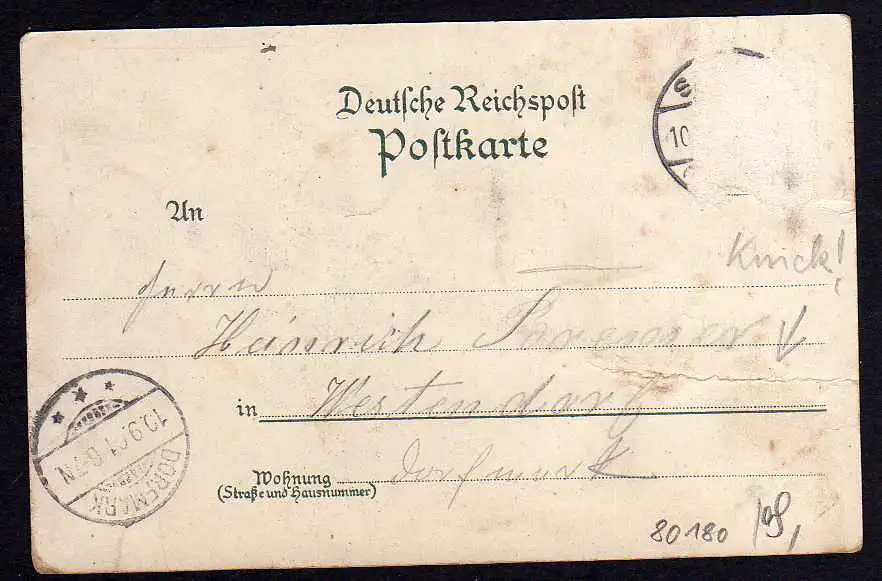 Deutsche Reichspost
Postkarte
S
10
An
Knick!
Herrn
Heinrich
in Westendorf
Dorfmark
Wohnung
(Straße und Hausnummer)
10.9.01 6-7N
DORFMARK
80180